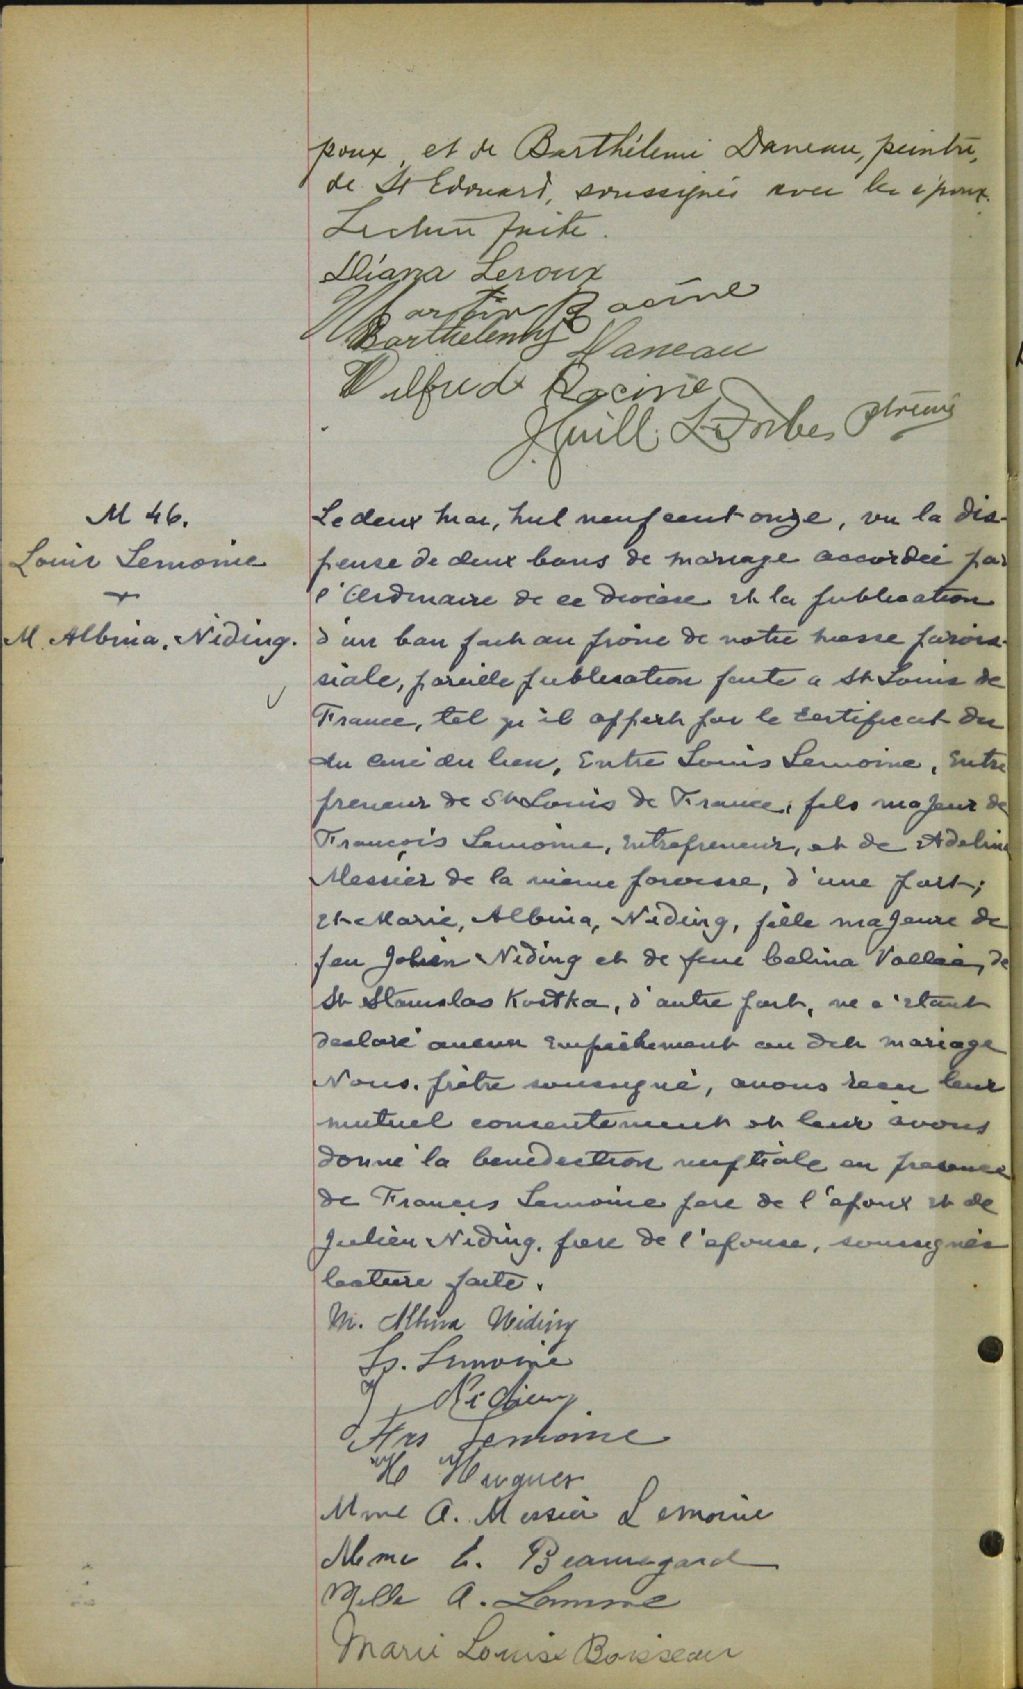 poux, et de Barthélemi Daneau, peintre,
de St Edouard, soussignés avec les époux.
Lecture faite.
Diana Leroux
Martin Racine
Barthelemy Daneau
Wilfrid Racine
J. Guill. LeForbes Ptre curé
M 46.
Louis Lemoine
+
M. Albina. Niding.
Le deux mai, mil neuf cent onze, vu la dis-
pense de deux bans de mariage accordée par
l'Ordinaire de ce diocèse et la publication
d'un ban fait au prône de notre messe parois-
siale, pareille publication faite a St Louis de
France, tel qu'il appert par le certificat du
du curé du lieu, Entre Louis Lemoine, Entre
preneur de St Louis de France, fils majeur de
François Lemoine, Entrepreneur, et de Adeline
Messier de la même paroisse, d'une part;
et Marie, Albina, Niding, fille majeure de
feu Julien Niding et de feue Celina Vallée, de
St Stanislas Kostka, d'autre part, ne s'étant
déclaré aucun empêchement au dit mariage
Nous, prêtre soussigné, avons recu leur
mutuel consentement et leur avons
donné la benediction nuptiale en presence
de François Lemoine père de l'époux et de
Julien Niding, frère de l'épouse, soussignés
lecture faite.
M. Albina Niding
Ls. Lemoine
J Niding
Frs Lemoine
H Hugues
Mme A. Messier Lemoine
Mme E. Beauregard
Melle A. Lemoine
Marie Louise Boisseau